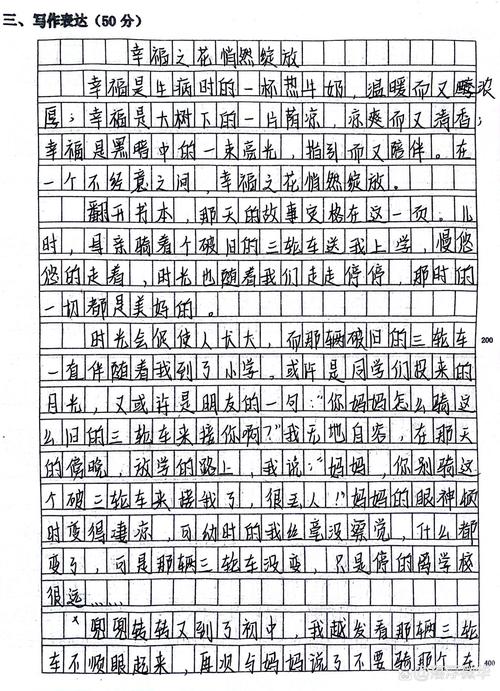 三、写作表达(50分)
幸福之花悄然绽放
幸福是生病时的一杯热牛奶,温暖而又浓
厚;幸福是大树下的一片荫凉,凉爽而又清香;
幸福是黑暗中的一束亮光,指引而又陪伴。在
一个不经意之间,幸福之花悄然绽放。
翻开书本,那天的故事定格在这一页。儿
时,母亲骑着个破旧的三轮车送我上学,慢悠
悠的走着,时光也随着我们走走停停,那时的
一切都是美好的。
时光会促使人长大,而那辆破旧的三轮车
200
一直伴随着我到了小学。或许是同学们投来的
月光,又或许是朋友的一句:"你妈妈怎么骑这
么旧的三轮车来接你啊?"我无地自容,在那天
的傍晚,放学的路上,我说:"妈妈,你别骑这
个破三轮车来接我了,很丢人!"妈妈的眼神顿
时变得凄凉,可幼时的我丝毫没察觉,什么都
变了,可是那辆三轮车没变,只是停的离学校
很远……
兜兜转转又到了初中,我越发看那辆三轮
车不顺眼起来,再次与妈妈说了不要骑那个车
400